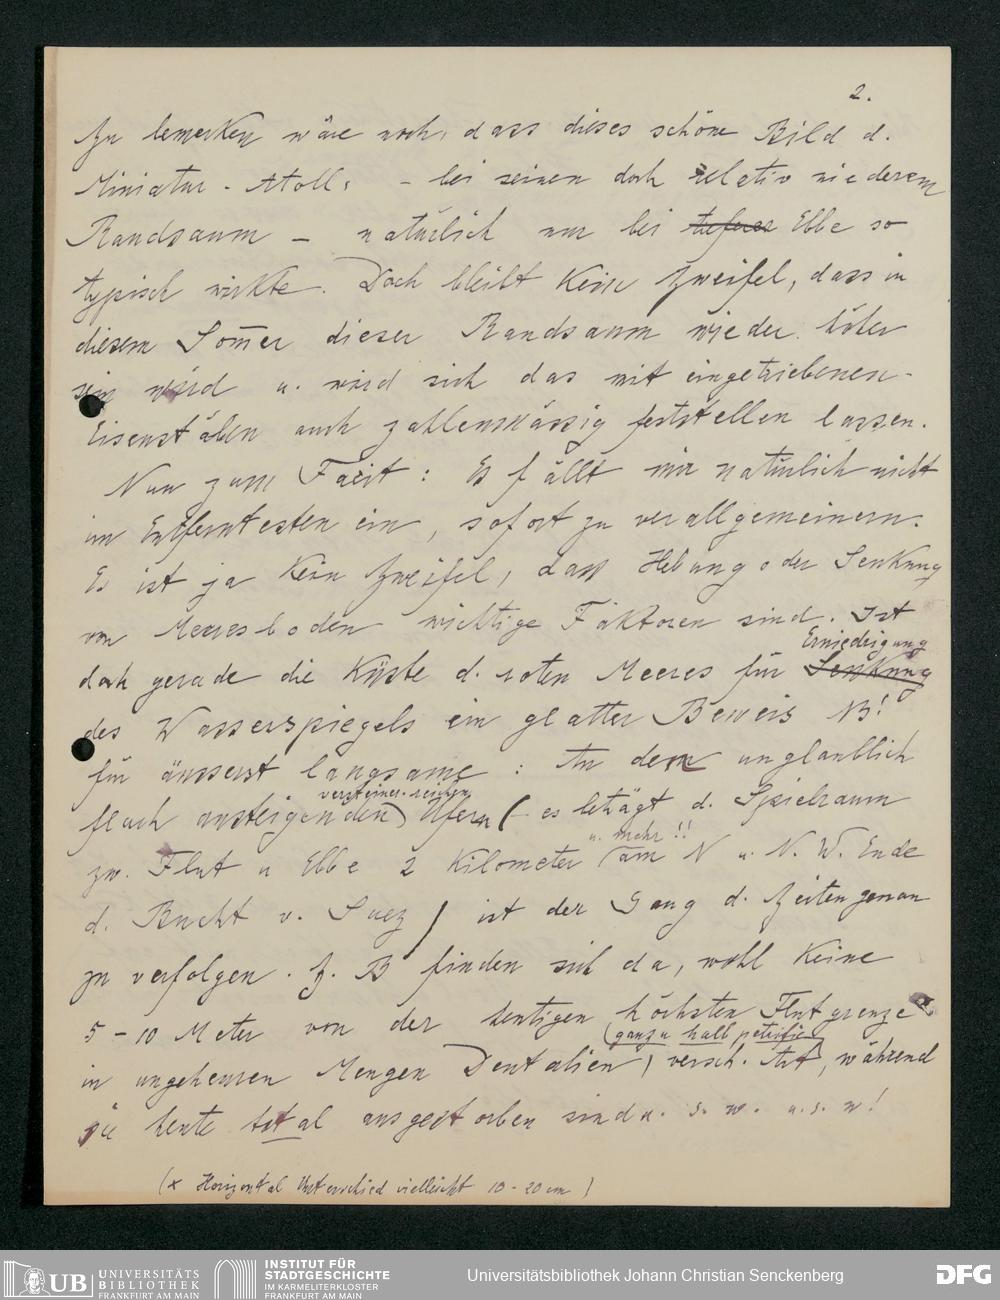 2.
Zu bemerken wäre noch, dass dieses schöne Bild d.
Miniatur-Atolls - bei seinen doch relativ niederem
Randsaum - natürlich nur bei tiefer Ebbe so
typisch wirkte. Doch bleibt kein Zweifel, dass in
diesem Som̄er dieser Randsaum wieder höher
sein wird u. wird sich das mit eingetriebenen-
Eisenstäben auch zahlenmässig feststellen lassen.
Nun zum Facit: Es fällt mir natürlich nicht
im Entferntesten ein, sofort zu verallgemeinern.
Es ist ja kein Zweifel, dass Hebung oder Senkung
von Meeresboden wichtige Faktoren sind. Ist
Erniedrigung
doch gerade die Küste d. roten Meeres für Senkung
des Wasserspiegels ein glatter Beweis NB!
für äusserst langsame: An dem unglaublich
versteiner. reichen
flach ansteigenden Ufern (- es beträgt d. Spielraum
u. mehr!!
zw. Flut u Ebbe 2 Kilometer am N u. N.W. Ende
d. Bucht v. Suez) ist der Gang d. Zeiten genau
zu verfolgen. Z. B finden sich da, wohl keine
5-10 Meter von der heutigen höchsten Flutgrenze
(ganz u halb petrific
in ungeheuren Mengen Dentalien, versch. Art, während
sie heute total ausgestorben sind u. s. w. u.s. w!
(x Horizontal Unterschied vielleicht 10-20 cm)
UB UNIVERSITÄTS
BIBLIOTHEK
FRANKFURT AM MAIN
INSTITUT FÜR
STADTGESCHICHTE
IM KARMELITERKLOSTER
FRANKFURT AM MAIN
Universitätsbibliothek Johann Christian Senckenberg
DFG